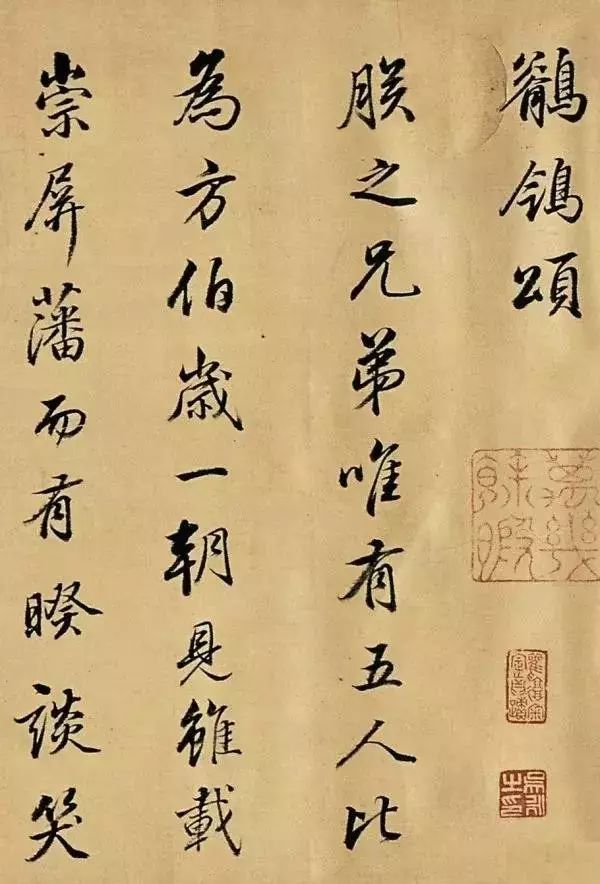 鶺鴒頌
朕之兄弟唯有五人比
為方伯歲一朝見雖載
崇屏藩而有睽談笑
萬幾餘暇